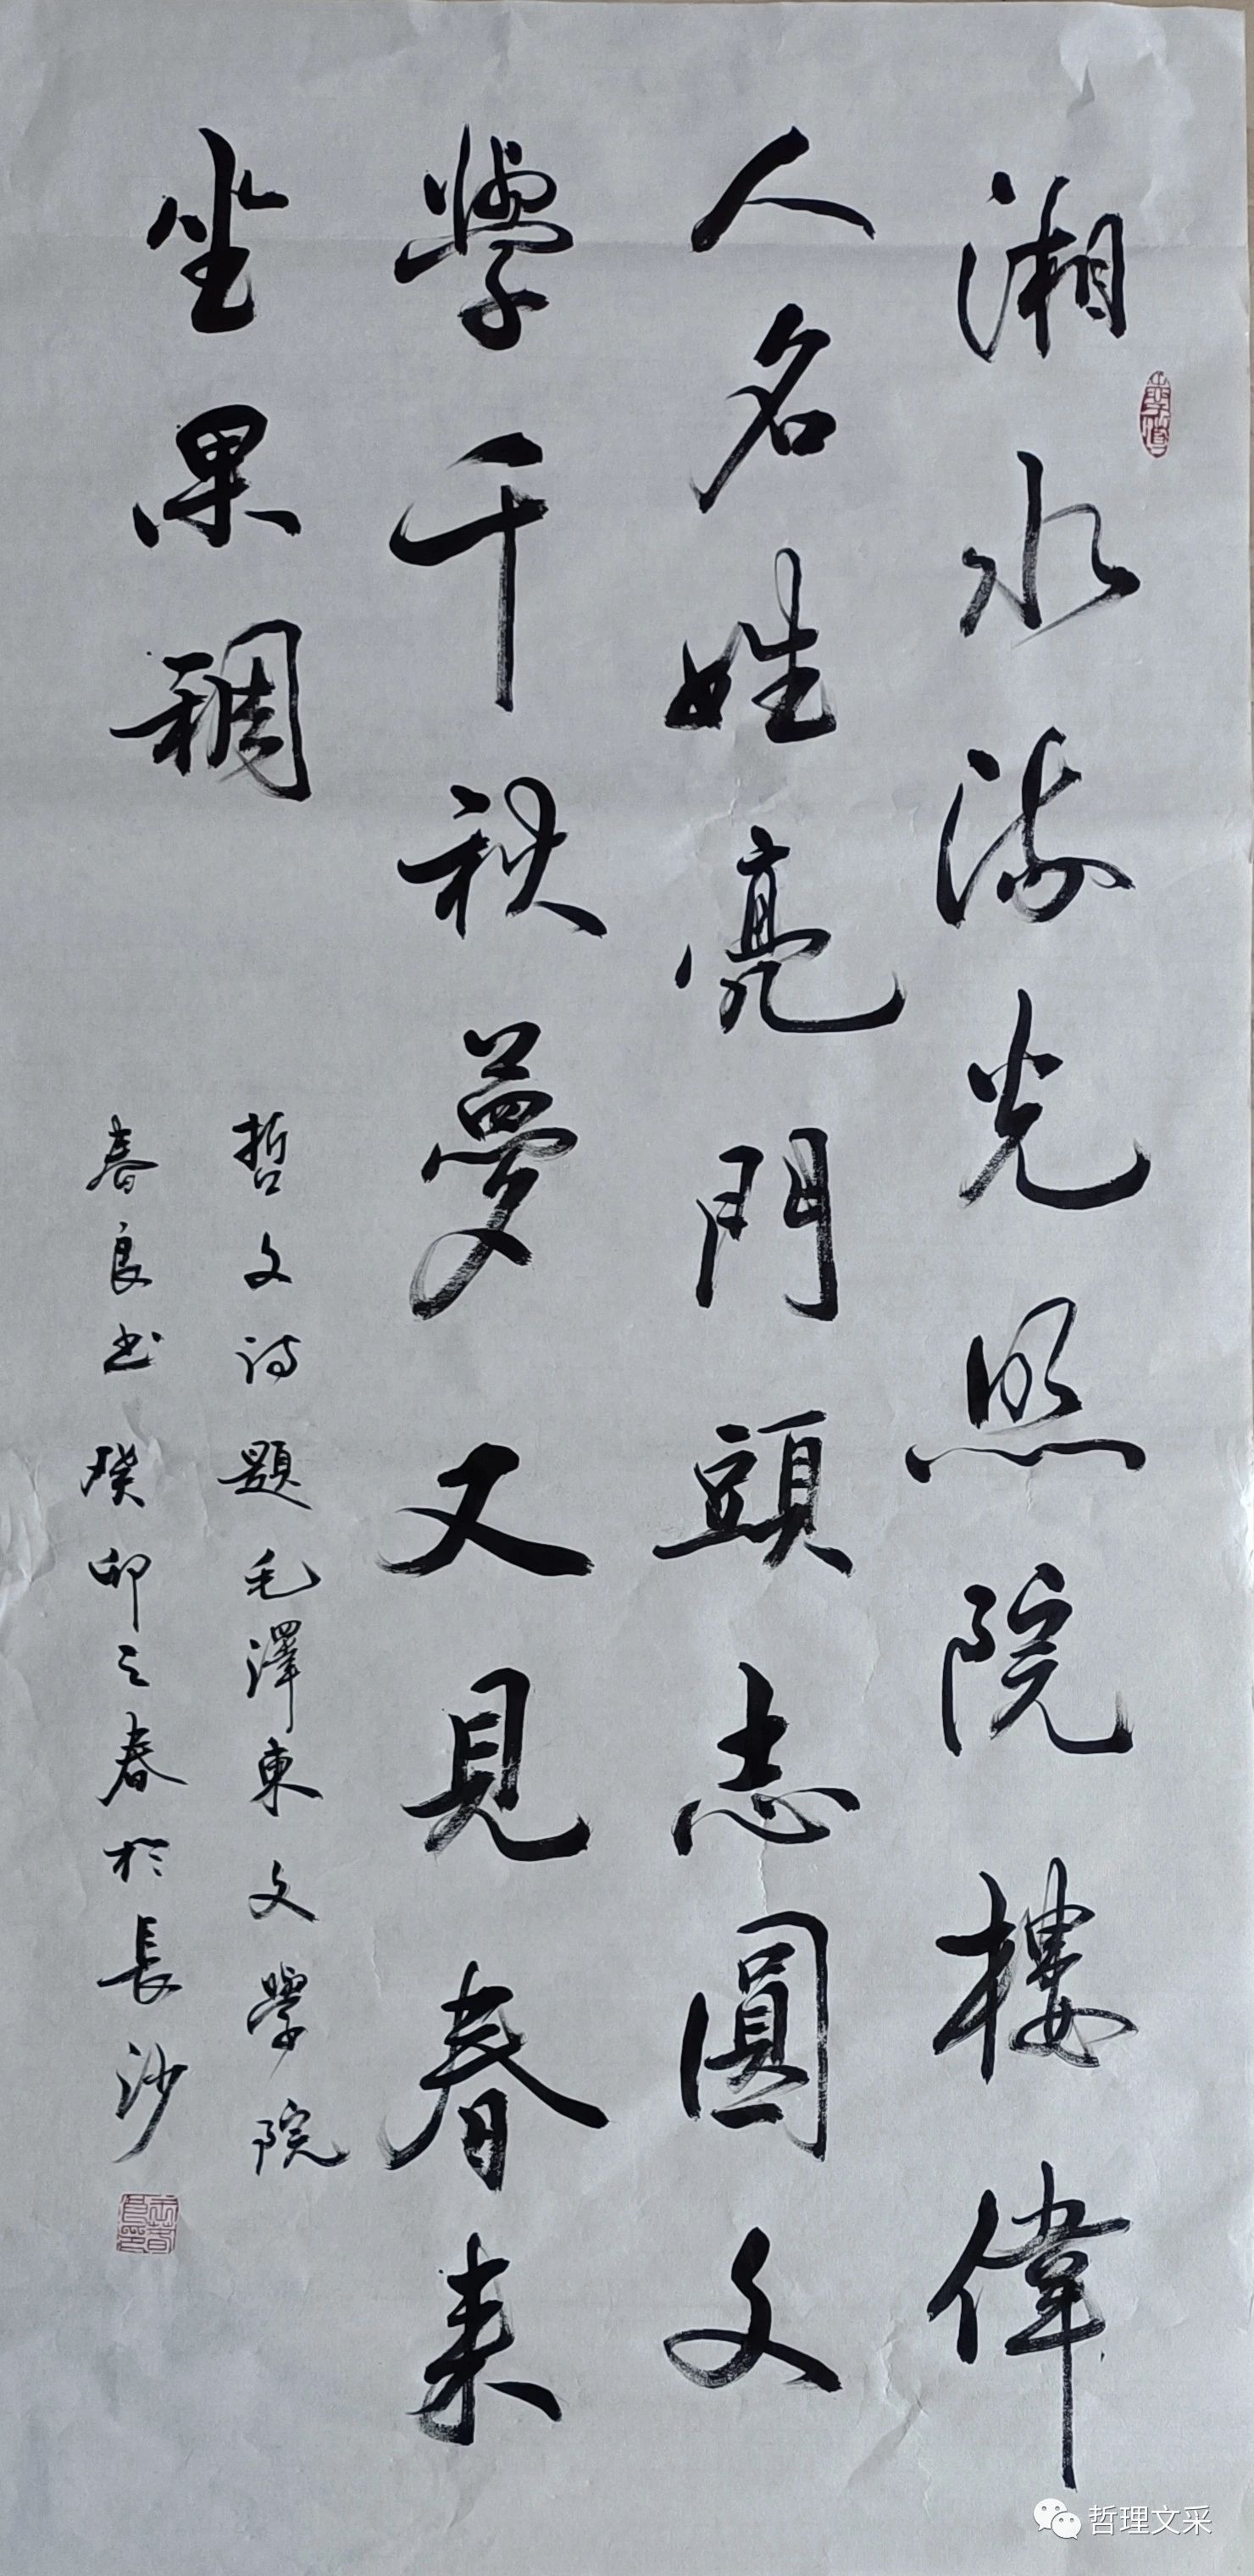 湘水流光照院樓偉
人名姓亮門頭志圓文
學千秋夢又見春来
坐果稠
哲文诗題毛澤東文學院
春良书癸卯之春於長沙
哲理文采